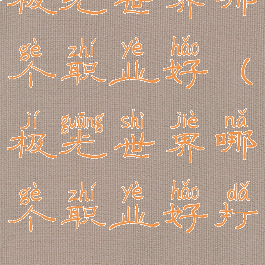 极光世界哪
gè zhí yè hǎo
个职业好（
jí guāng shì jiè nǎ
极光世界哪
gè zhí yè hǎo dǎ
个职业好打